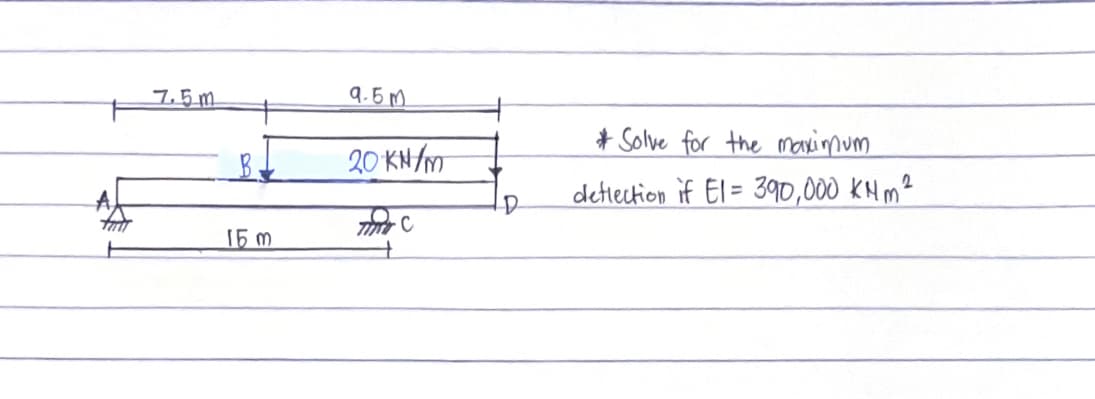 7.5 m 9.5 m
* Solve for the maximum
B 20 KN/m
deflection if EI = 390,000 KNm²
A D
C
15 m